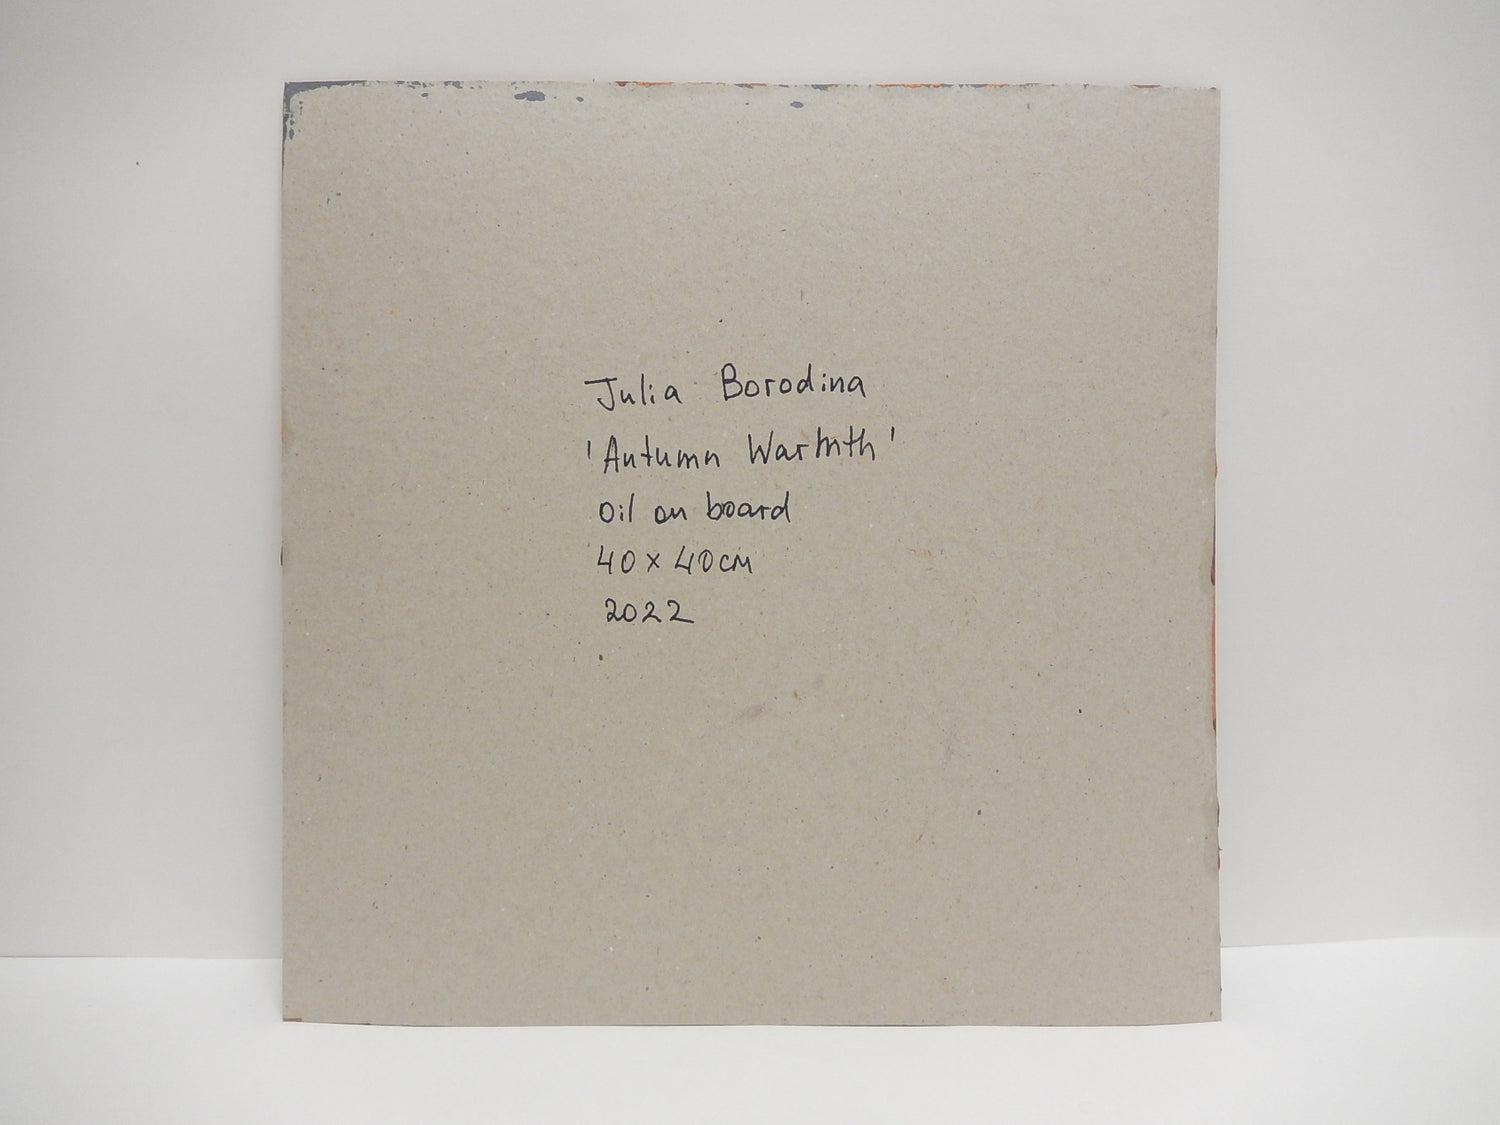 Julia Borodina
'Autumn Warmth'
Oil on board
40 x 40 cm
2022